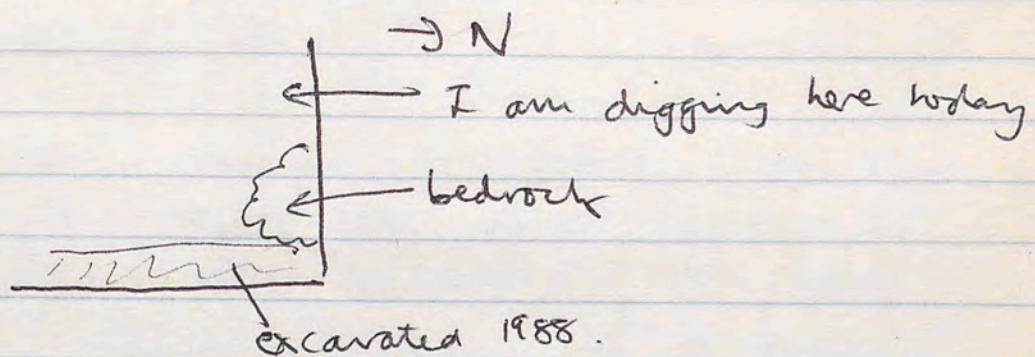 → N
I am digging here today
bedrock
excavated 1988.